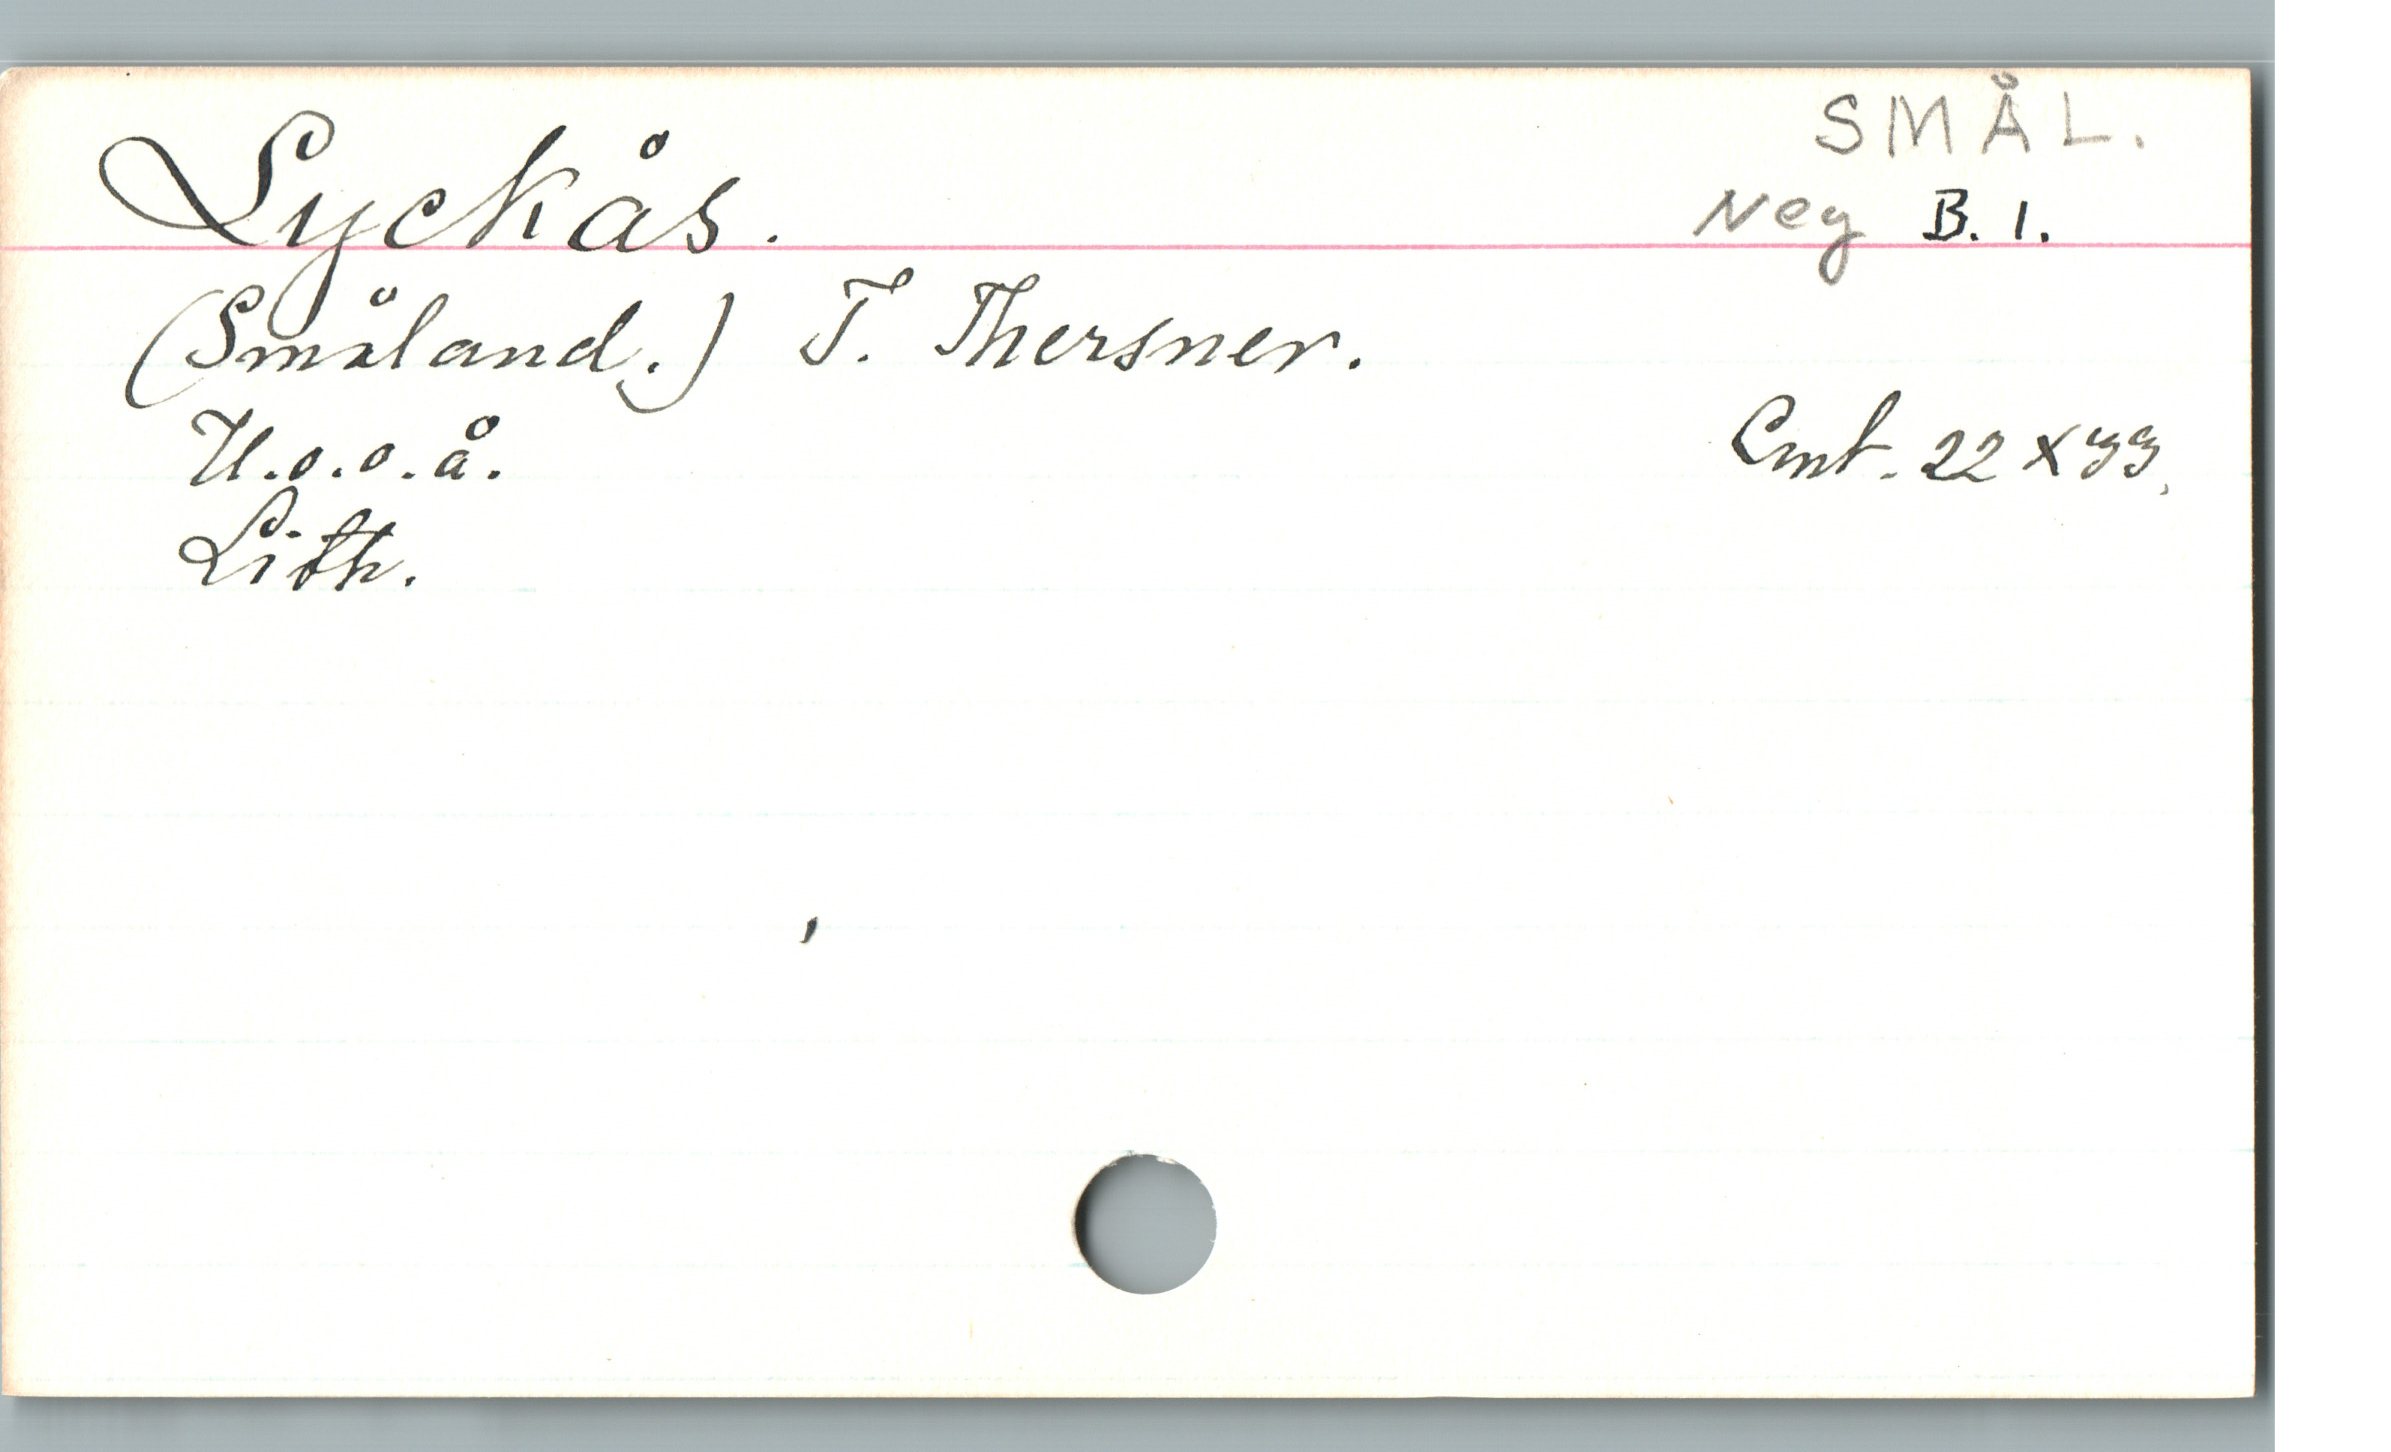 SMÅL.
Lyckås.
Neg B. 1.
(Småland.) T. Thersner.
U.o.o.å.
Cmt. 22 x 33.
Lith.